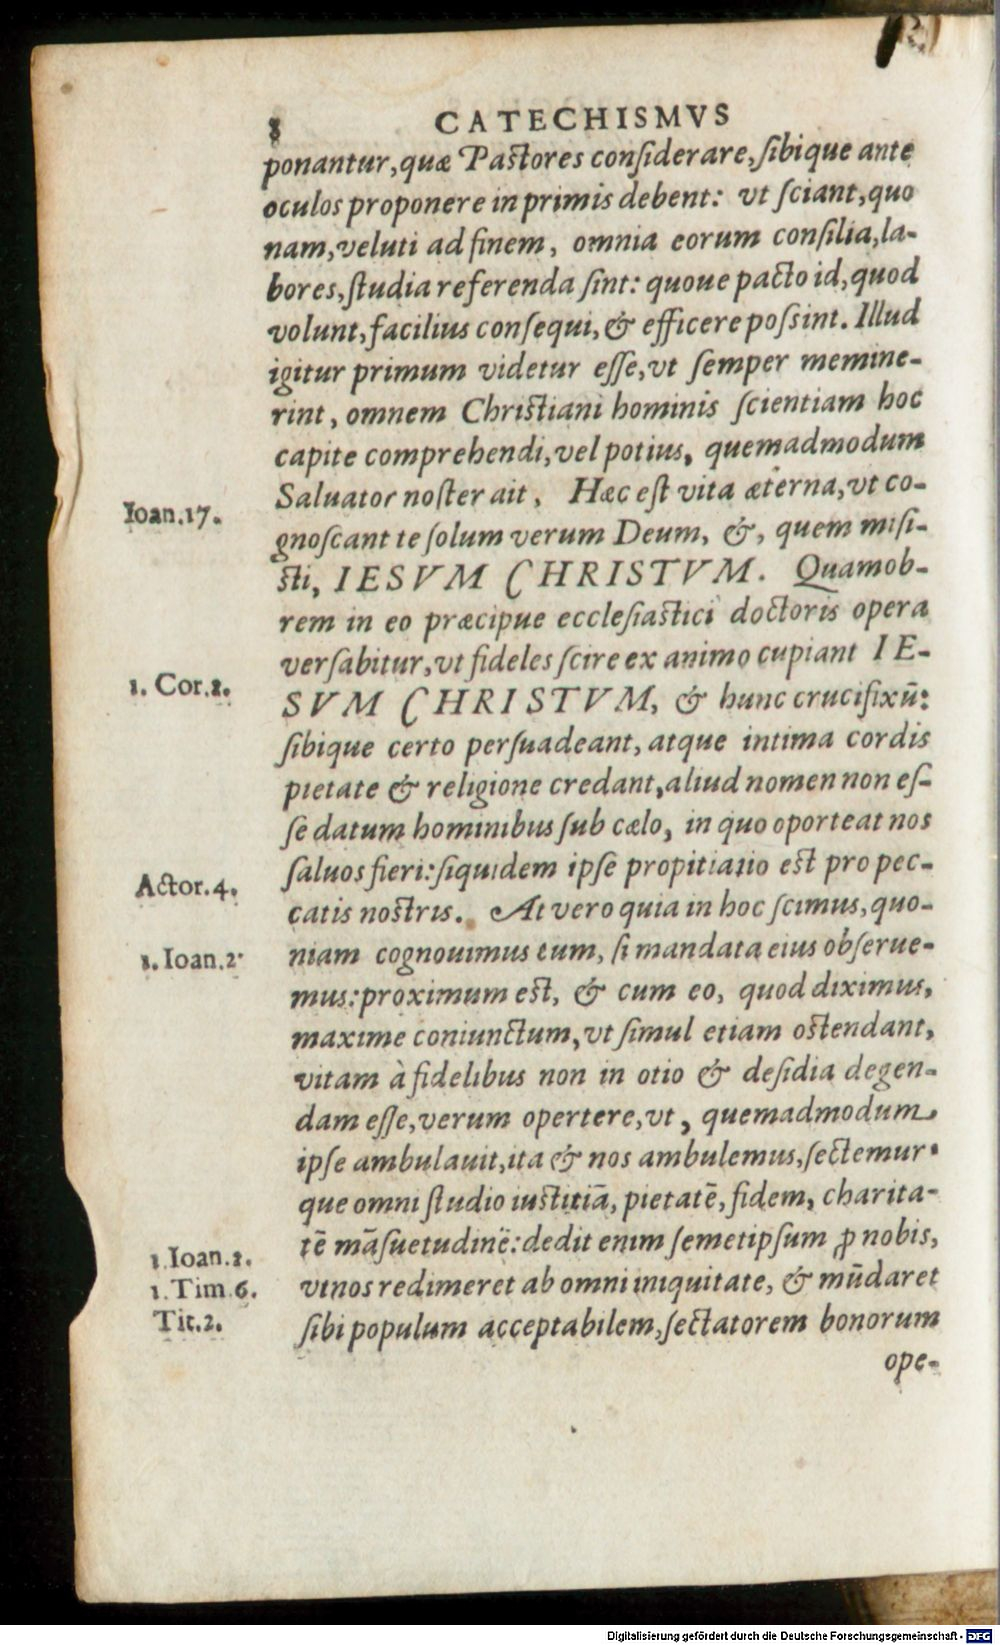 8 CATECHISMVS
ponantur, quæ Pastores considerare, sibique ante
oculos proponere in primis debent: vt sciant, quo
nam, veluti ad finem, omnia eorum consilia, la-
bores, studia referenda sint: quoue pacto id, quod
volunt, facilius consequi, & efficere possint. Illud
igitur primum videtur esse, vt semper memine-
rint, omnem Christiani hominis scientiam hoc
capite comprehendi, vel potius, quemadmodum
Saluator noster ait, Hæc est vita æterna, vt co-
Ioan. 17.
gnoscant te solum verum Deum, &, quem misi-
sti, IESVM CHRISTVM. Quamob-
rem in eo præcipue ecclesiastici doctoris opera
versabitur, vt fideles scire ex animo cupiant IE-
1. Cor. 2.
SVM CHRISTVM, & hunc crucifixū:
sibique certo persuadeant, atque intima cordis
pietate & religione credant, aliud nomen non es-
se datum hominibus sub cælo, in quo oporteat nos
saluos fieri: siquidem ipse propitiatio est pro pec-
Actor. 4.
catis nostris. At vero quia in hoc scimus, quo-
niam cognouimus eum, si mandata eius obserue-
1. Ioan. 2.
mus: proximum est, & cum eo, quod diximus,
maxime coniunctum, vt simul etiam ostendant,
vitam à fidelibus non in otio & desidia degen-
dam esse, verum opertere, vt, quemadmodum
ipse ambulauit, ita & nos ambulemus, sectemur-
que omni studio iustitiā, pietatē, fidem, charita-
tē māsuetudinē: dedit enim semetipsum ꝓ nobis,
1. Ioan. 2.
vt nos redimeret ab omni iniquitate, & mūdaret
1. Tim. 6.
sibi populum acceptabilem, sectatorem bonorum
Tit. 2.
ope-
Digitalisierung gefördert durch die Deutsche Forschungsgemeinschaft - DFG